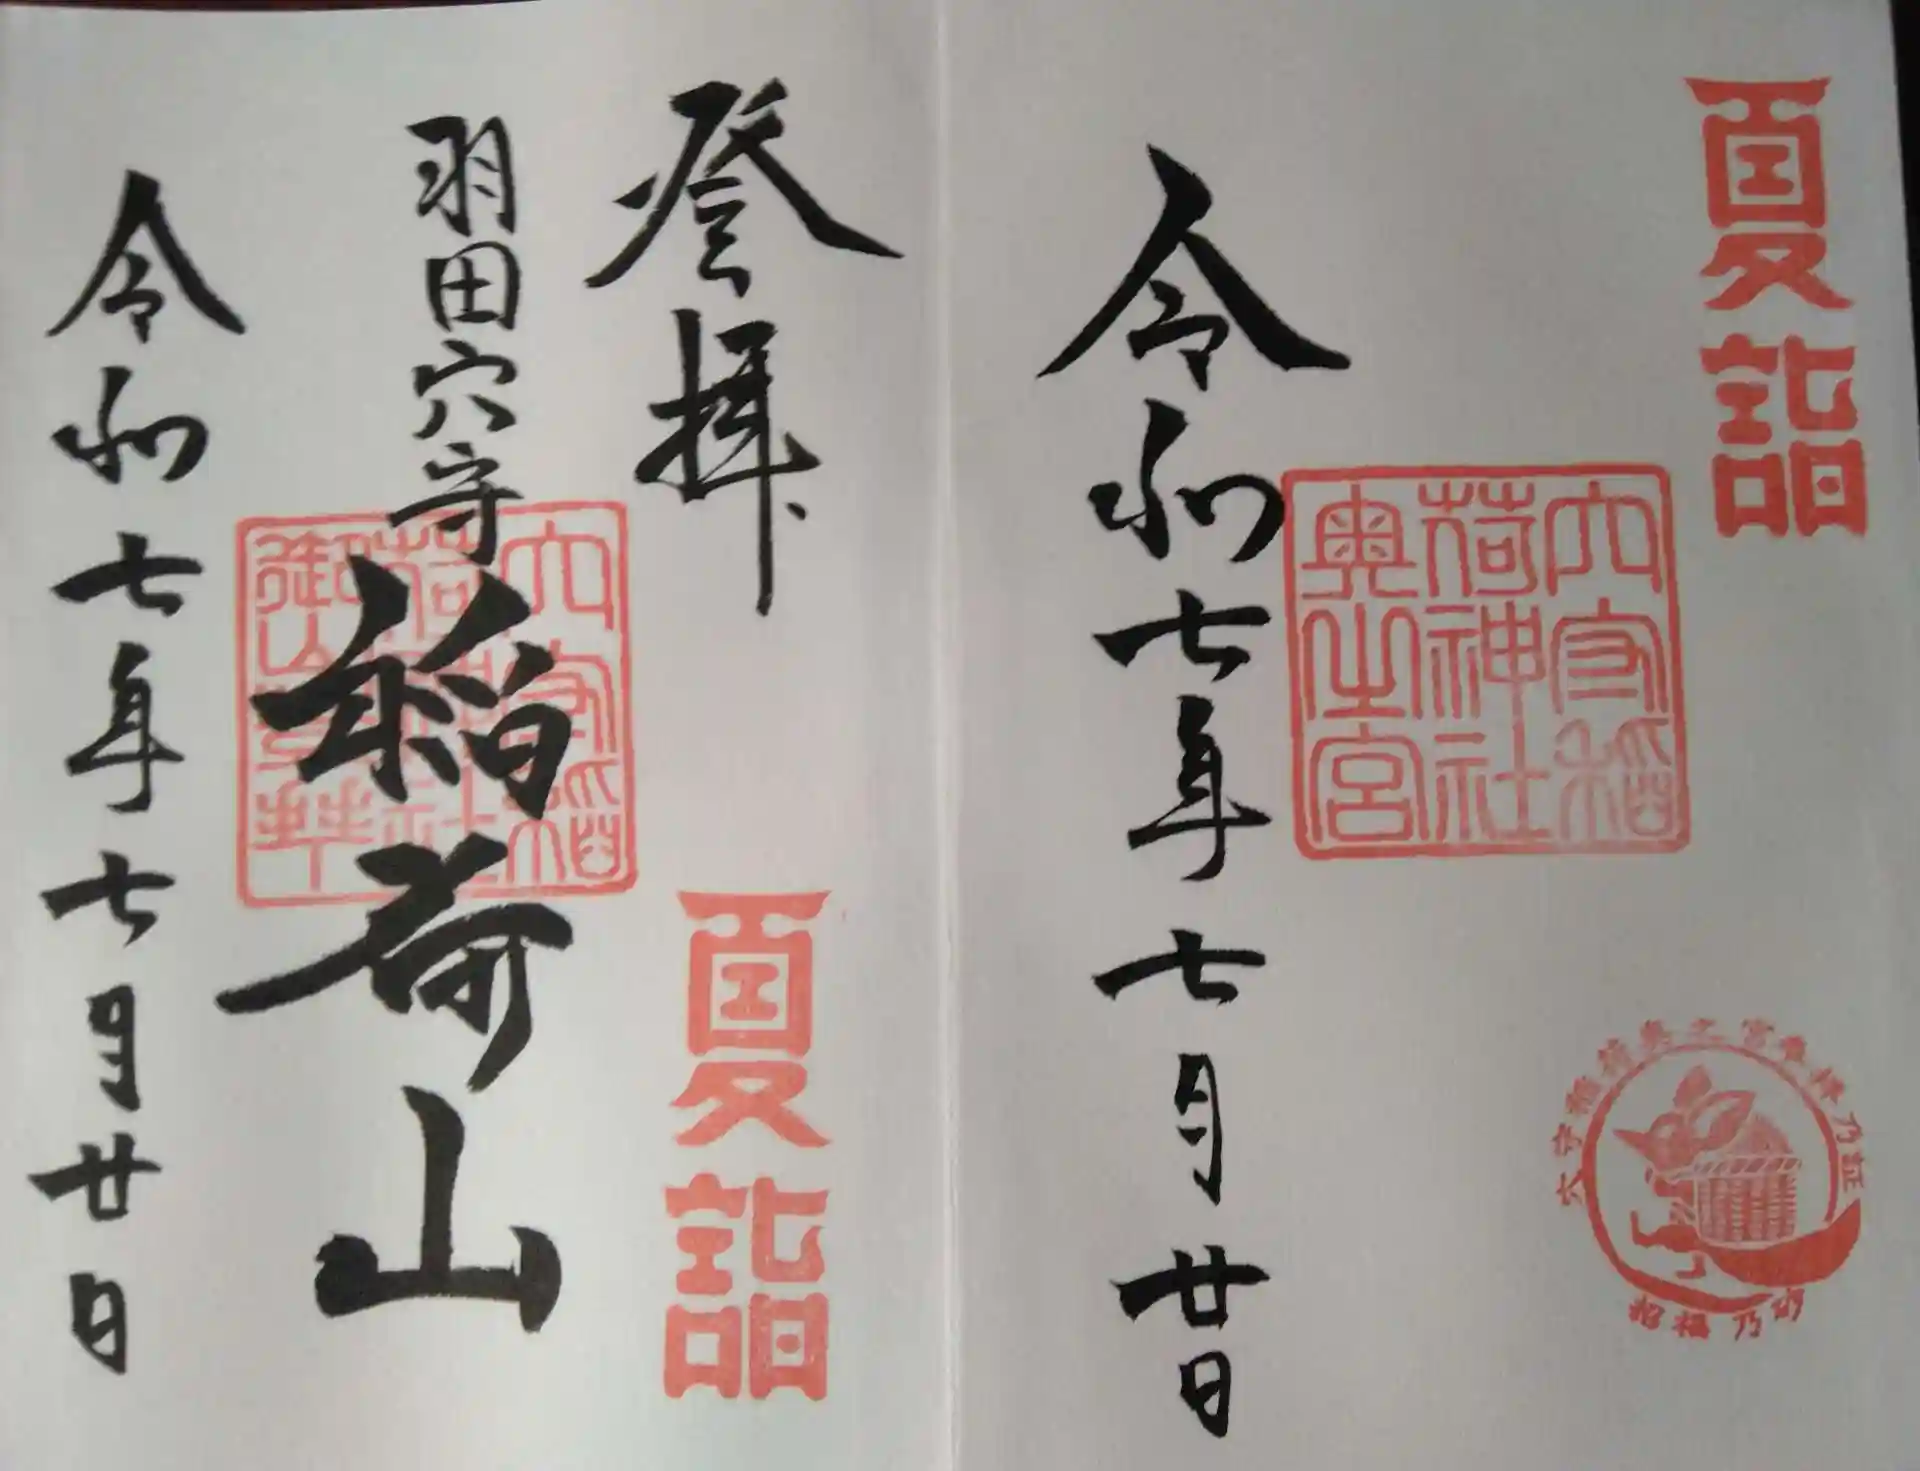 夏詣
穴守稲
荷神社
奥之宮
穴守稲荷奥之宮参拝乃証
招福乃砂
令和七年七月廿日
登拝
夏詣
羽田穴守
稲荷山
穴守稲
荷神社
令和七年七月廿日